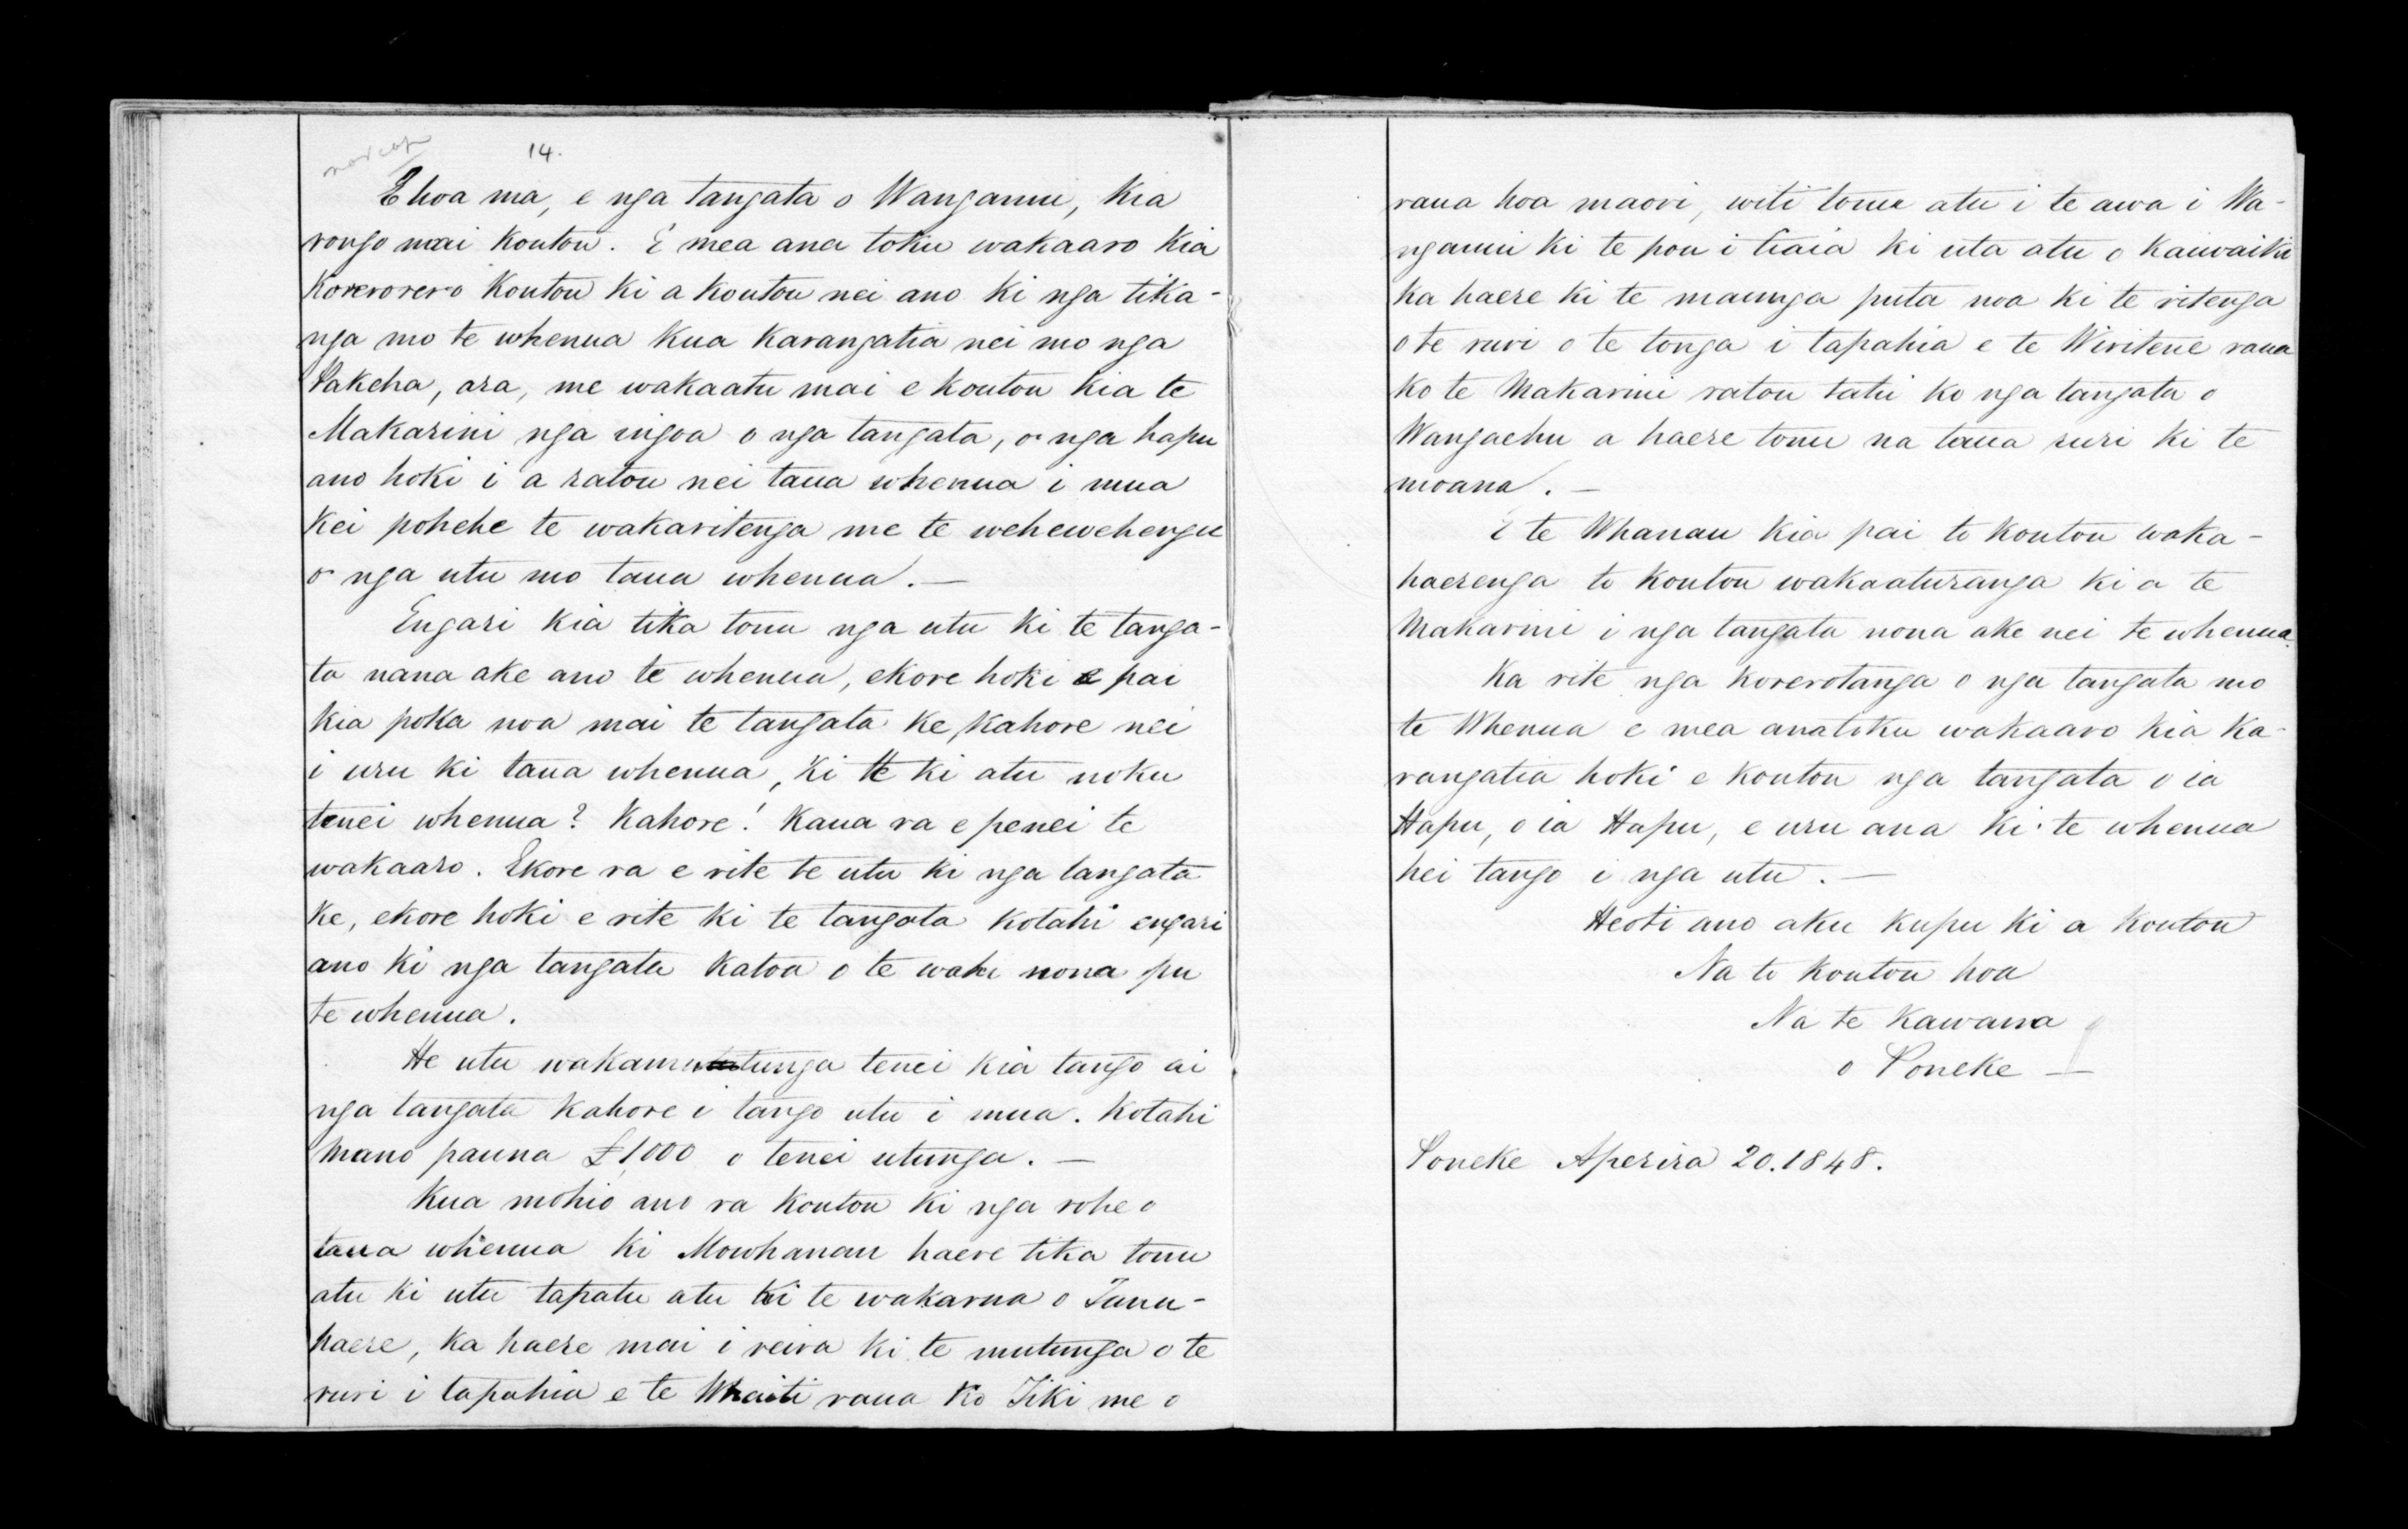 14.
E hoa ma, e nga tangata o Wanganui, Kia
rongo mai Koutou. E mea ana toku wakaaro Kia
Korerorero Koutou Ki a Koutou nei ano Ki nga tika-
nga mo te whenua Kua Karangatia nei mo nga
Pakeha, ara, me wakaatu mai e Koutou Kia te
Makarini nga ingoa o nga tangata, o nga hapu
ano hoki i a ratou nei taua whenua i mua
Kei pohehe te wakaritenga me te wehewehenga
o nga utu mo taua whenua. —
Engari Kia tika tonu nga utu Ki te tanga-
ta nana ake ano te whenua, ekore hoki e pai
Kia poka noa mai te tangata Ke, Kahore nei
i uru Ki taua whenua, Ki te Ki atu noku
tenei whenua? Kahore! Kaua ra e penei te
wakaaro. Ekore ra e rite te utu Ki nga tangata
Ke, ekore hoki e rite Ki te tangata Kotahi engari
ano Ki nga tangata Katoa o te wahi nona pu
te whenua.
He utu wakamutunga tenei Kia tango ai
nga tangata Kahore i tango utu i mua. Kotahi
mano pauna £1,000 o tenei utunga. —
Kua mohio ano ra Koutou Ki nga rohe o
taua whenua Ki Mowhanau haere tika tonu
atu Ki uta tapatu atu Ki te wakarua o Tunu-
haere, Ka haere mai i reira Ki te mutunga o te
ruri i tapahia e te Whaiti raua Ko Tiki me o
raua hoa maori, witi tonu atu i te awa i Wa-
nganui Ki te pou i tiaia Ki uta atu o Kaiwaiki
Ka haere Ki te maunga puta noa Ki te ritenga
o te ruri o te tonga i tapahia e te Wiritene raua
Ko te Makarini ratou tahi Ko nga tangata o
Wangaehu a haere tonu na taua ruri Ki te
moana. —
E te Whanau Kia pai to Koutou waka-
haerenga to Koutou wakaaturanga Ki a te
Makarini i nga tangata nona ake nei te whenua.
Ka rite nga Korerotanga o nga tangata mo
te Whenua e mea ana toku wakaaro Kia Ka-
rangatia hoki e Koutou nga tangata o ia
Hapu, o ia Hapu, e uru ana Ki te whenua
hei tango i nga utu. —
Heoti ano aku Kupu Ki a Koutou
Na to Koutou hoa
Na te Kawana
o Poneke —
Poneke Aperira 20. 1848.